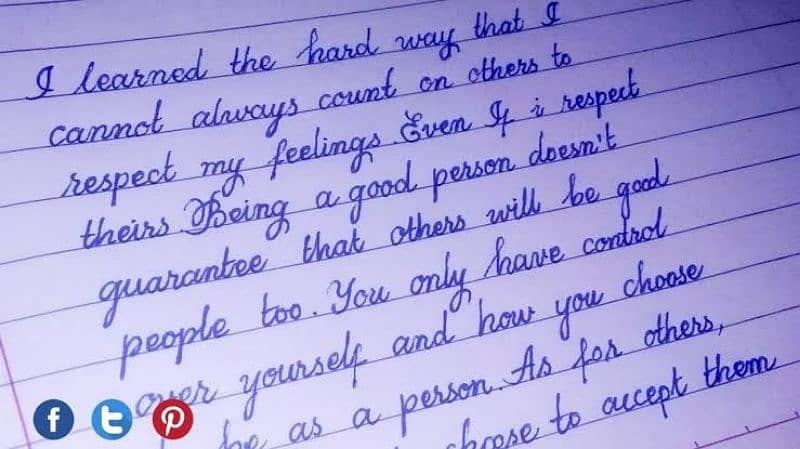 I learned the hard way that I
cannot always count on others to
respect my feelings. Even If i respect
theirs. Being a good person doesn't
guarantee that others will be good
people too. You only have control
over yourself and how you choose
be as a person. As for others,
choose to accept them